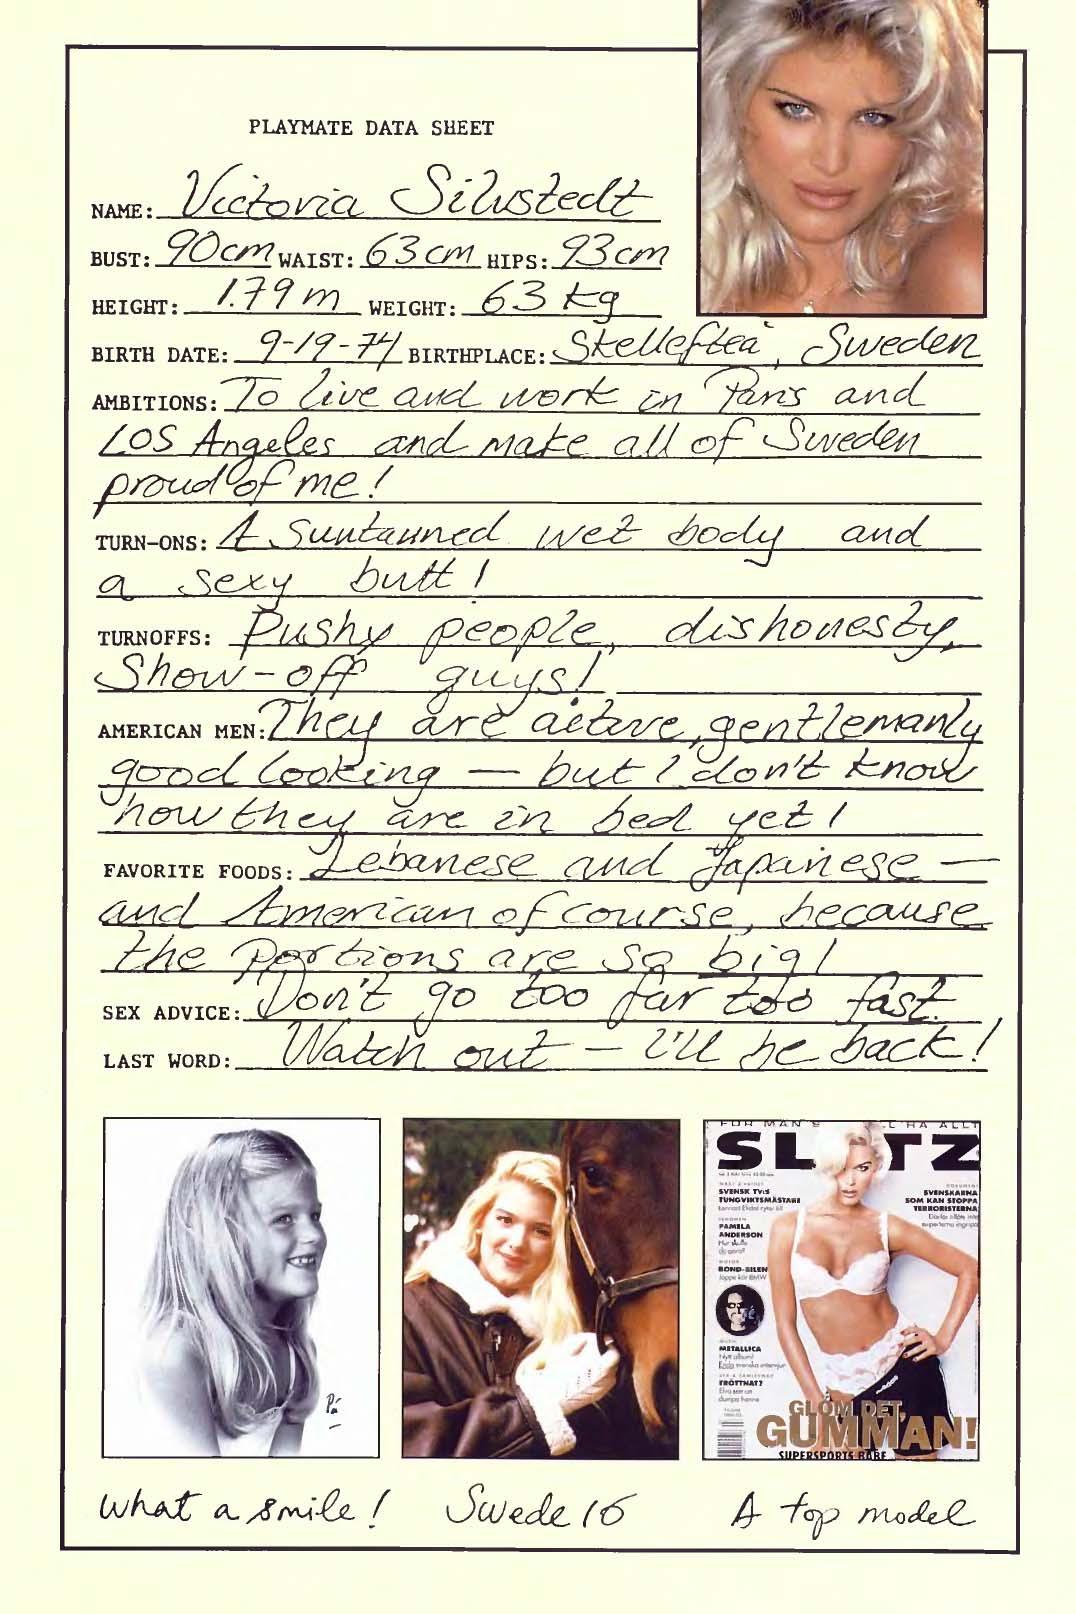 PLAYMATE DATA SHEET
NAME: Victoria Silvstedt
BUST: 90cm WAIST: 63cm HIPS: 93cm
HEIGHT: 1.79m WEIGHT: 63 kg
BIRTH DATE: 9-19-74 BIRTHPLACE: Skellefteå, Sweden
AMBITIONS: To live and work in Paris and
Los Angeles and make all of Sweden
proud of me!
TURN-ONS: A suntanned wet body and
a sexy butt!
TURNOFFS: Pushy people, dishonesty,
Show-off guys!
AMERICAN MEN: They are active, gentlemanly
good looking — but I don't know
how they are in bed yet!
FAVORITE FOODS: Lebanese and Japanese —
and American of course, because
the portions are so big!
SEX ADVICE: Don't go too far too fast.
LAST WORD: Watch out — I'll be back!
SL TZ
SVENSK TV:S
TUNGVIKTSMÄSTARE
PAMELA
ANDERSON
BOND-BILEN
Joppe kör BMW
METALLICA
Nytt album!
TRÖTTNAT?
Elva sätt att
dumpa henne
SVENSKARNA
SOM KAN STOPPA
TERRORISTERNA
GLÖM DET,
GUMMAN!
SUPERSPORTS BABE
Pá
What a smile! Swede 16 A top model